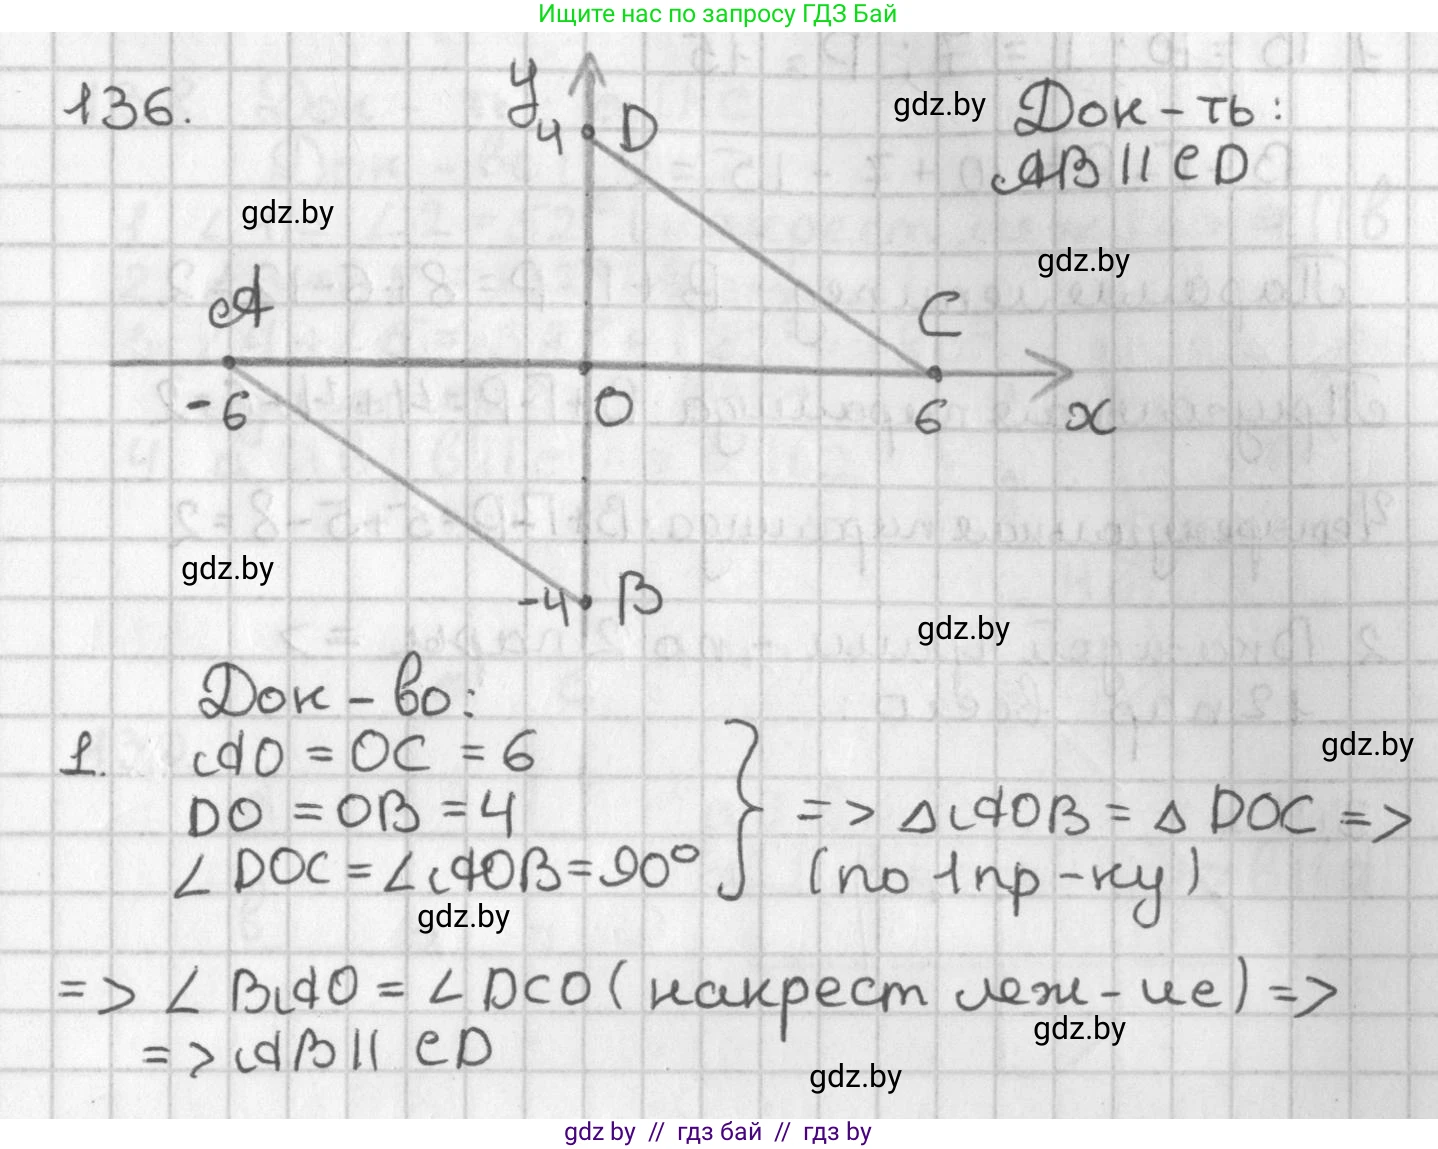 Ищите нас по запросу ГДЗ Бай
136.
y
4 D
gdz.by
Док-ть:
AB || CD
gdz.by
gdz.by
A
C
-6
O
6
x
gdz.by
-4 B
gdz.by
Док-во:
gdz.by
1. AO = OC = 6
DO = OB = 4
∠DOC = ∠AOB = 90°
=> ΔAOB = ΔDOC =>
(по 1 пр-ку)
gdz.by
=> ∠BAO = ∠DCO (накрест леж-ие) =>
gdz.by
=> AB || CD
gdz.by
gdz by // гдз бай // гдз by